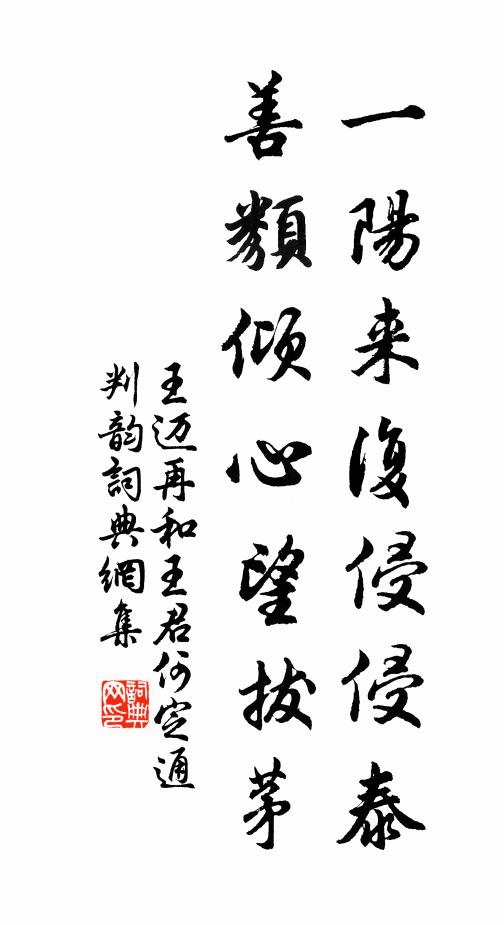 一陽来復侵侵泰
善類傾心望拔茅
王迈再和王君何定通
判韵詞典網集
詞典网印